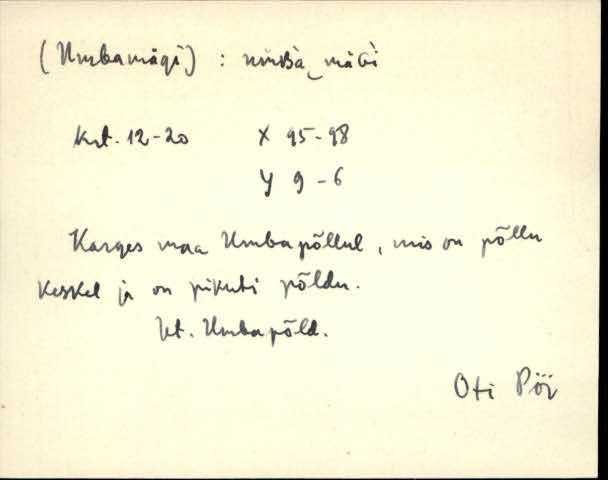 (Umbamägi) : umBà‿mäGì
krt. 12-20 X 95-98
Y 9-6
Karges maa Umbapõllul, mis on põllu
keskel ja on pikuti põldu.
Vt. Umbapõld.
Oti Pöj